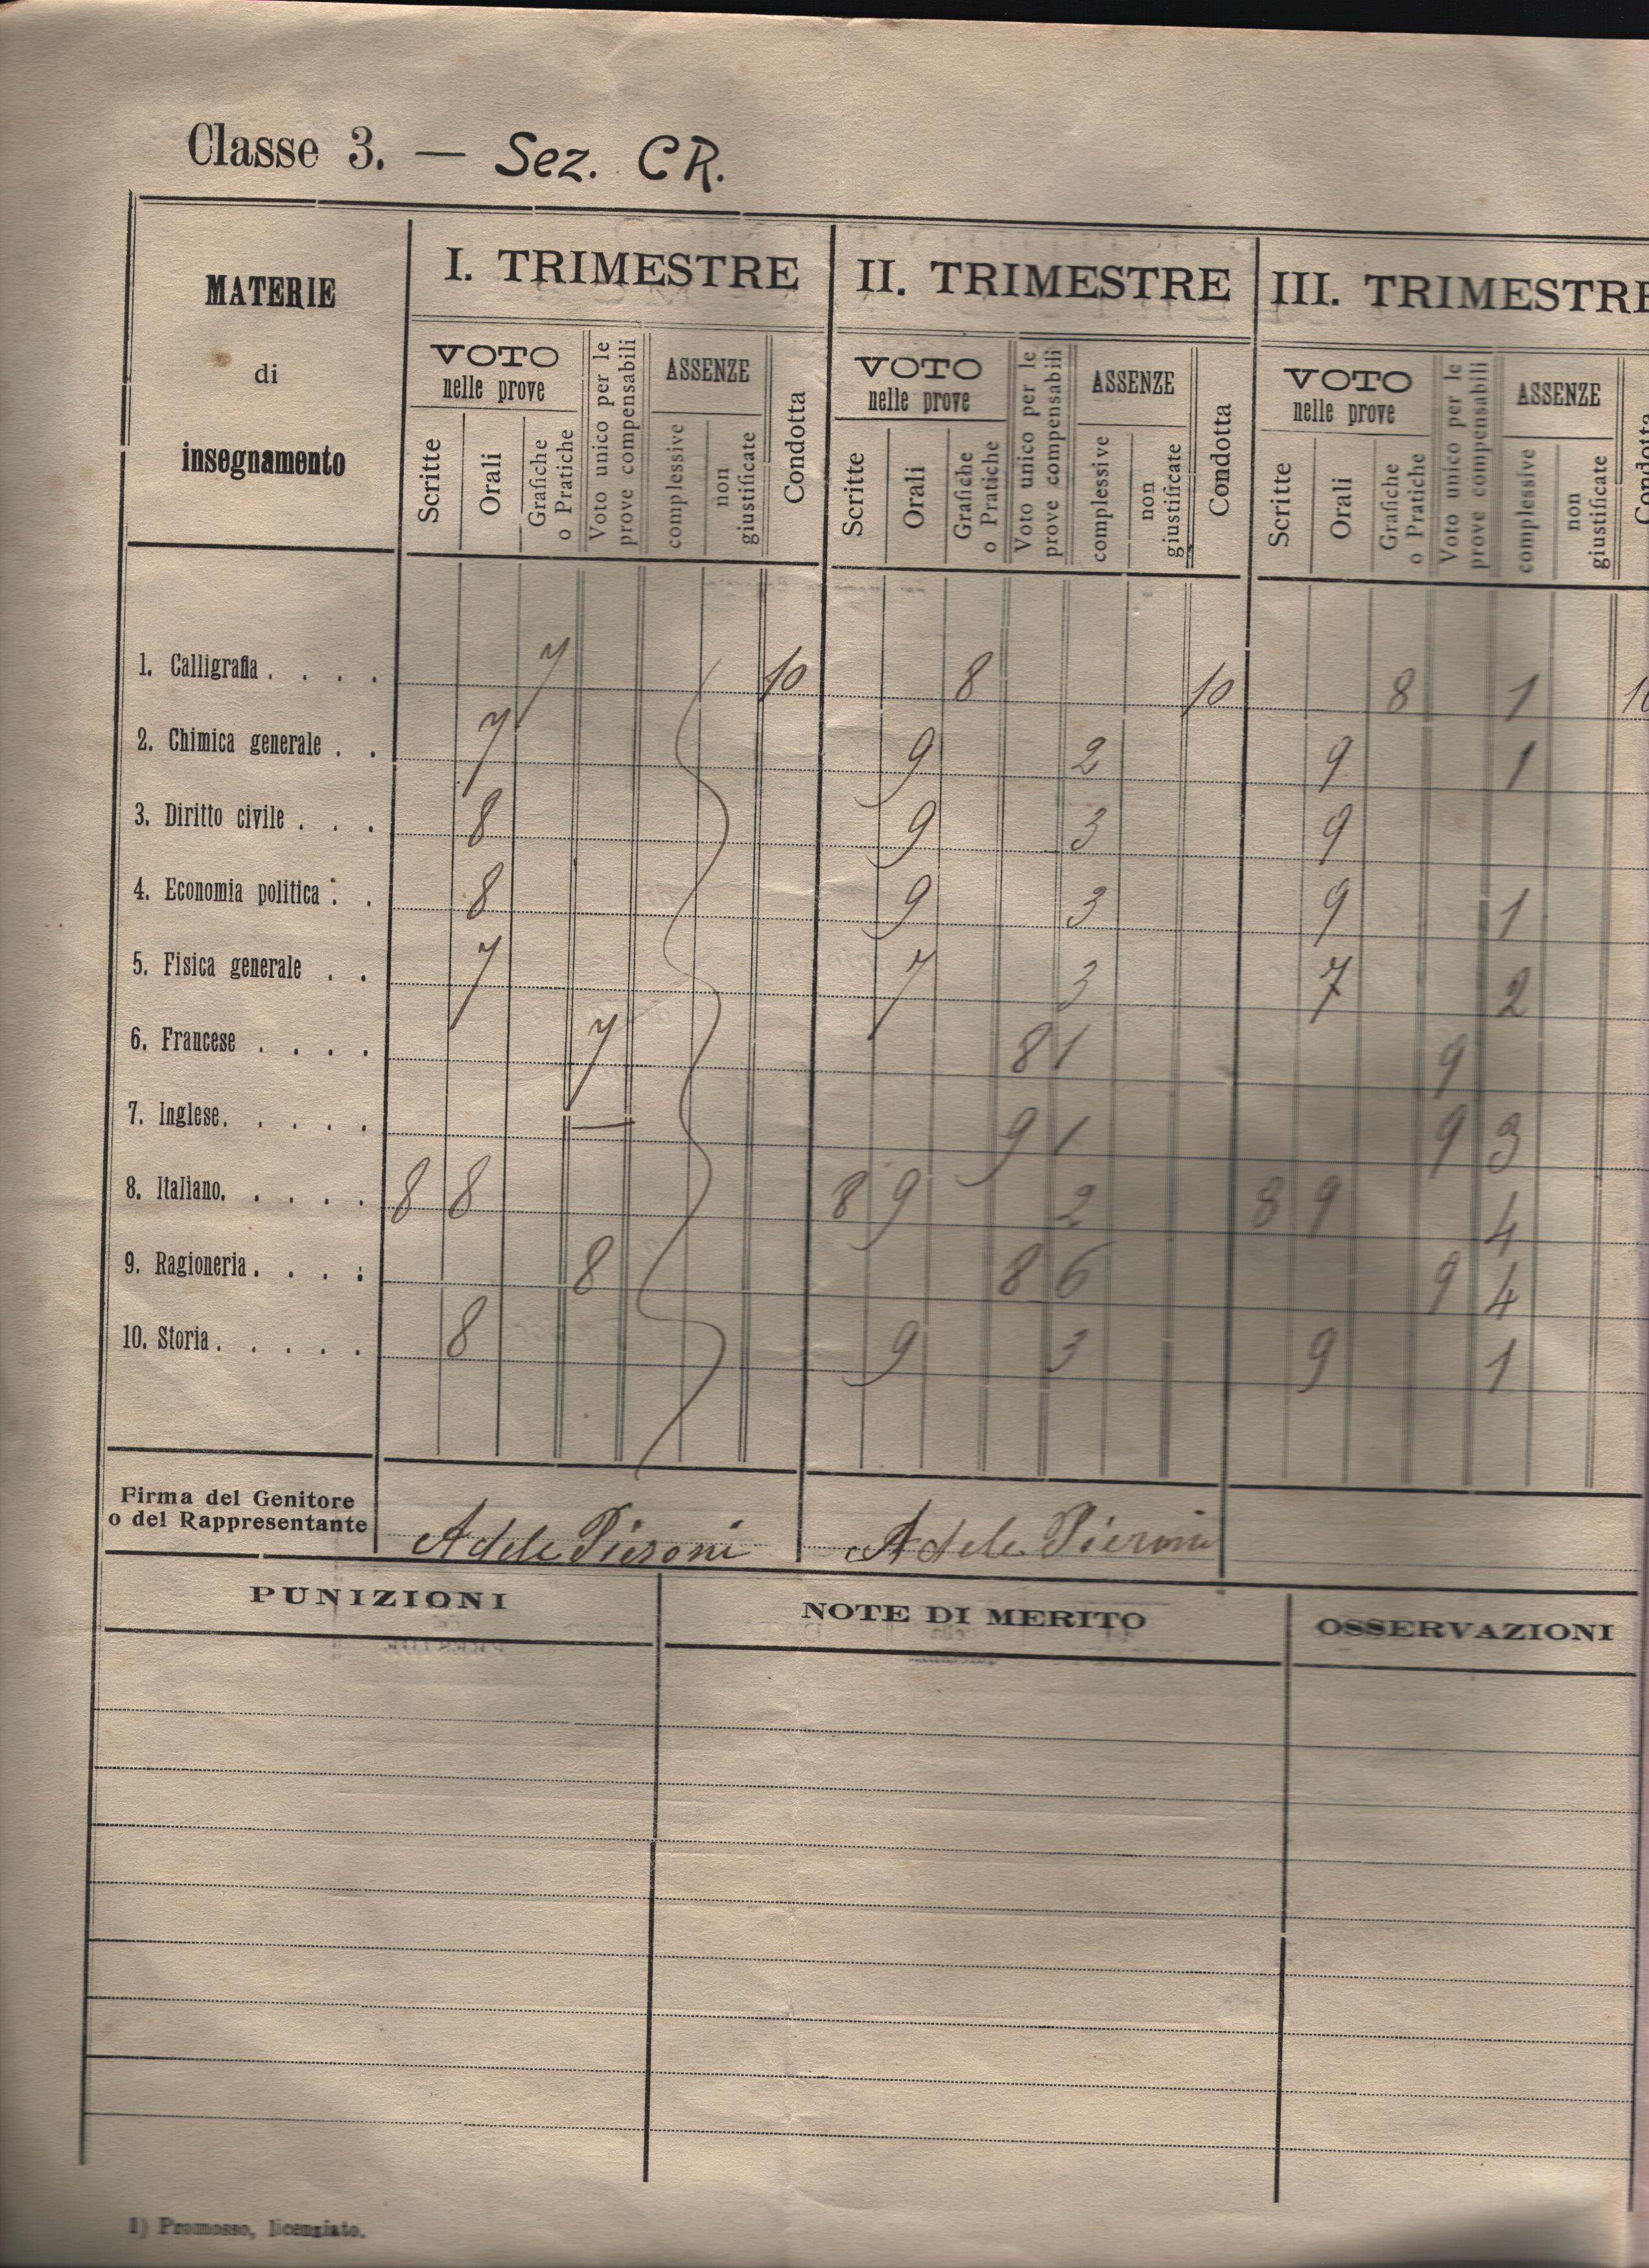 Classe 3. — Sez. CR.
MATERIE di insegnamento
I. TRIMESTRE
II. TRIMESTRE
III. TRIMESTRE
VOTO nelle prove
Scritte
Orali
Grafiche o Pratiche
Voto unico per le prove compensabili
ASSENZE
complessive
non giustificate
Condotta
VOTO nelle prove
Scritte
Orali
Grafiche o Pratiche
Voto unico per le prove compensabili
ASSENZE
complessive
non giustificate
Condotta
VOTO nelle prove
Scritte
Orali
Grafiche o Pratiche
Voto unico per le prove compensabili
ASSENZE
complessive
non giustificate
Condotta
1. Calligrafia . . . . 7 10 8 10 8 1 10
2. Chimica generale . . 7 9 2 9 1
3. Diritto civile . . . 8 9 3 9
4. Economia politica . . 8 9 3 9 1
5. Fisica generale . . 7 7 3 7 2
6. Francese . . . . 7 8 1 9
7. Inglese. . . . . — 9 1 9 3
8. Italiano. . . . . 8 8 8 9 2 8 9 4
9. Ragioneria. . . . 8 8 6 9 4
10. Storia . . . . . 8 9 3 9 1
Firma del Genitore
o del Rappresentante
Adele Pieroni
Adele Pieroni
PUNIZIONI
NOTE DI MERITO
OSSERVAZIONI
1) Promosso, licenziato.